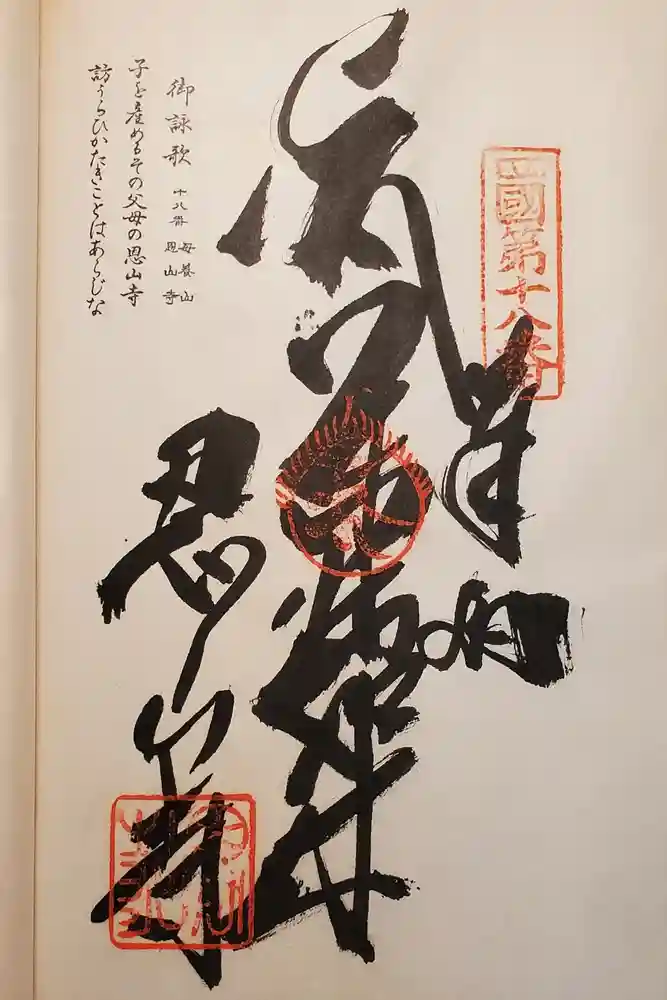 四國第十八番
奉納
恩山寺
御詠歌 十八番 母養山 恩山寺
子を産めるその父母の恩山寺
訪らひがたきことはあらじな